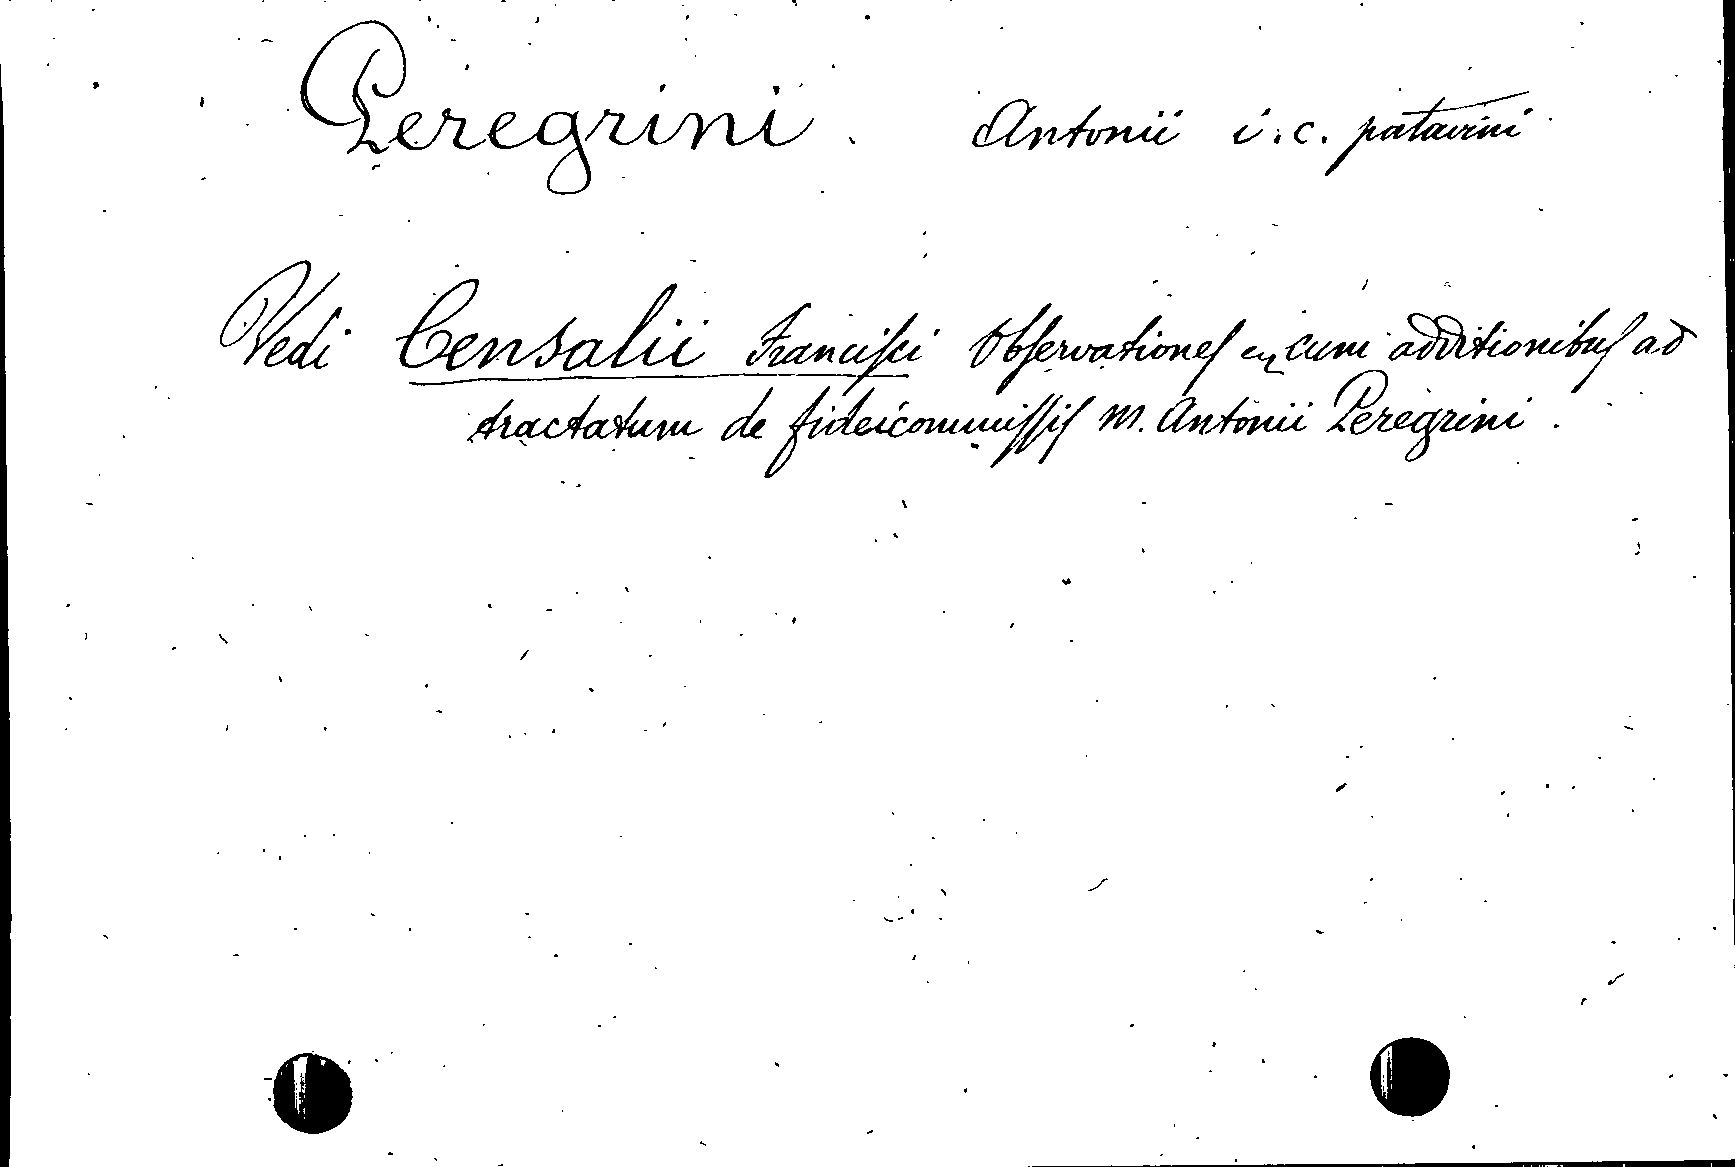 Peregrini. Antonii i.c. patavini
Vedi Censalii Franciſci Obſervationeſ cum additionibuſ ad
tractatum de fideicommiſſiſ M. Antonii Peregrini.